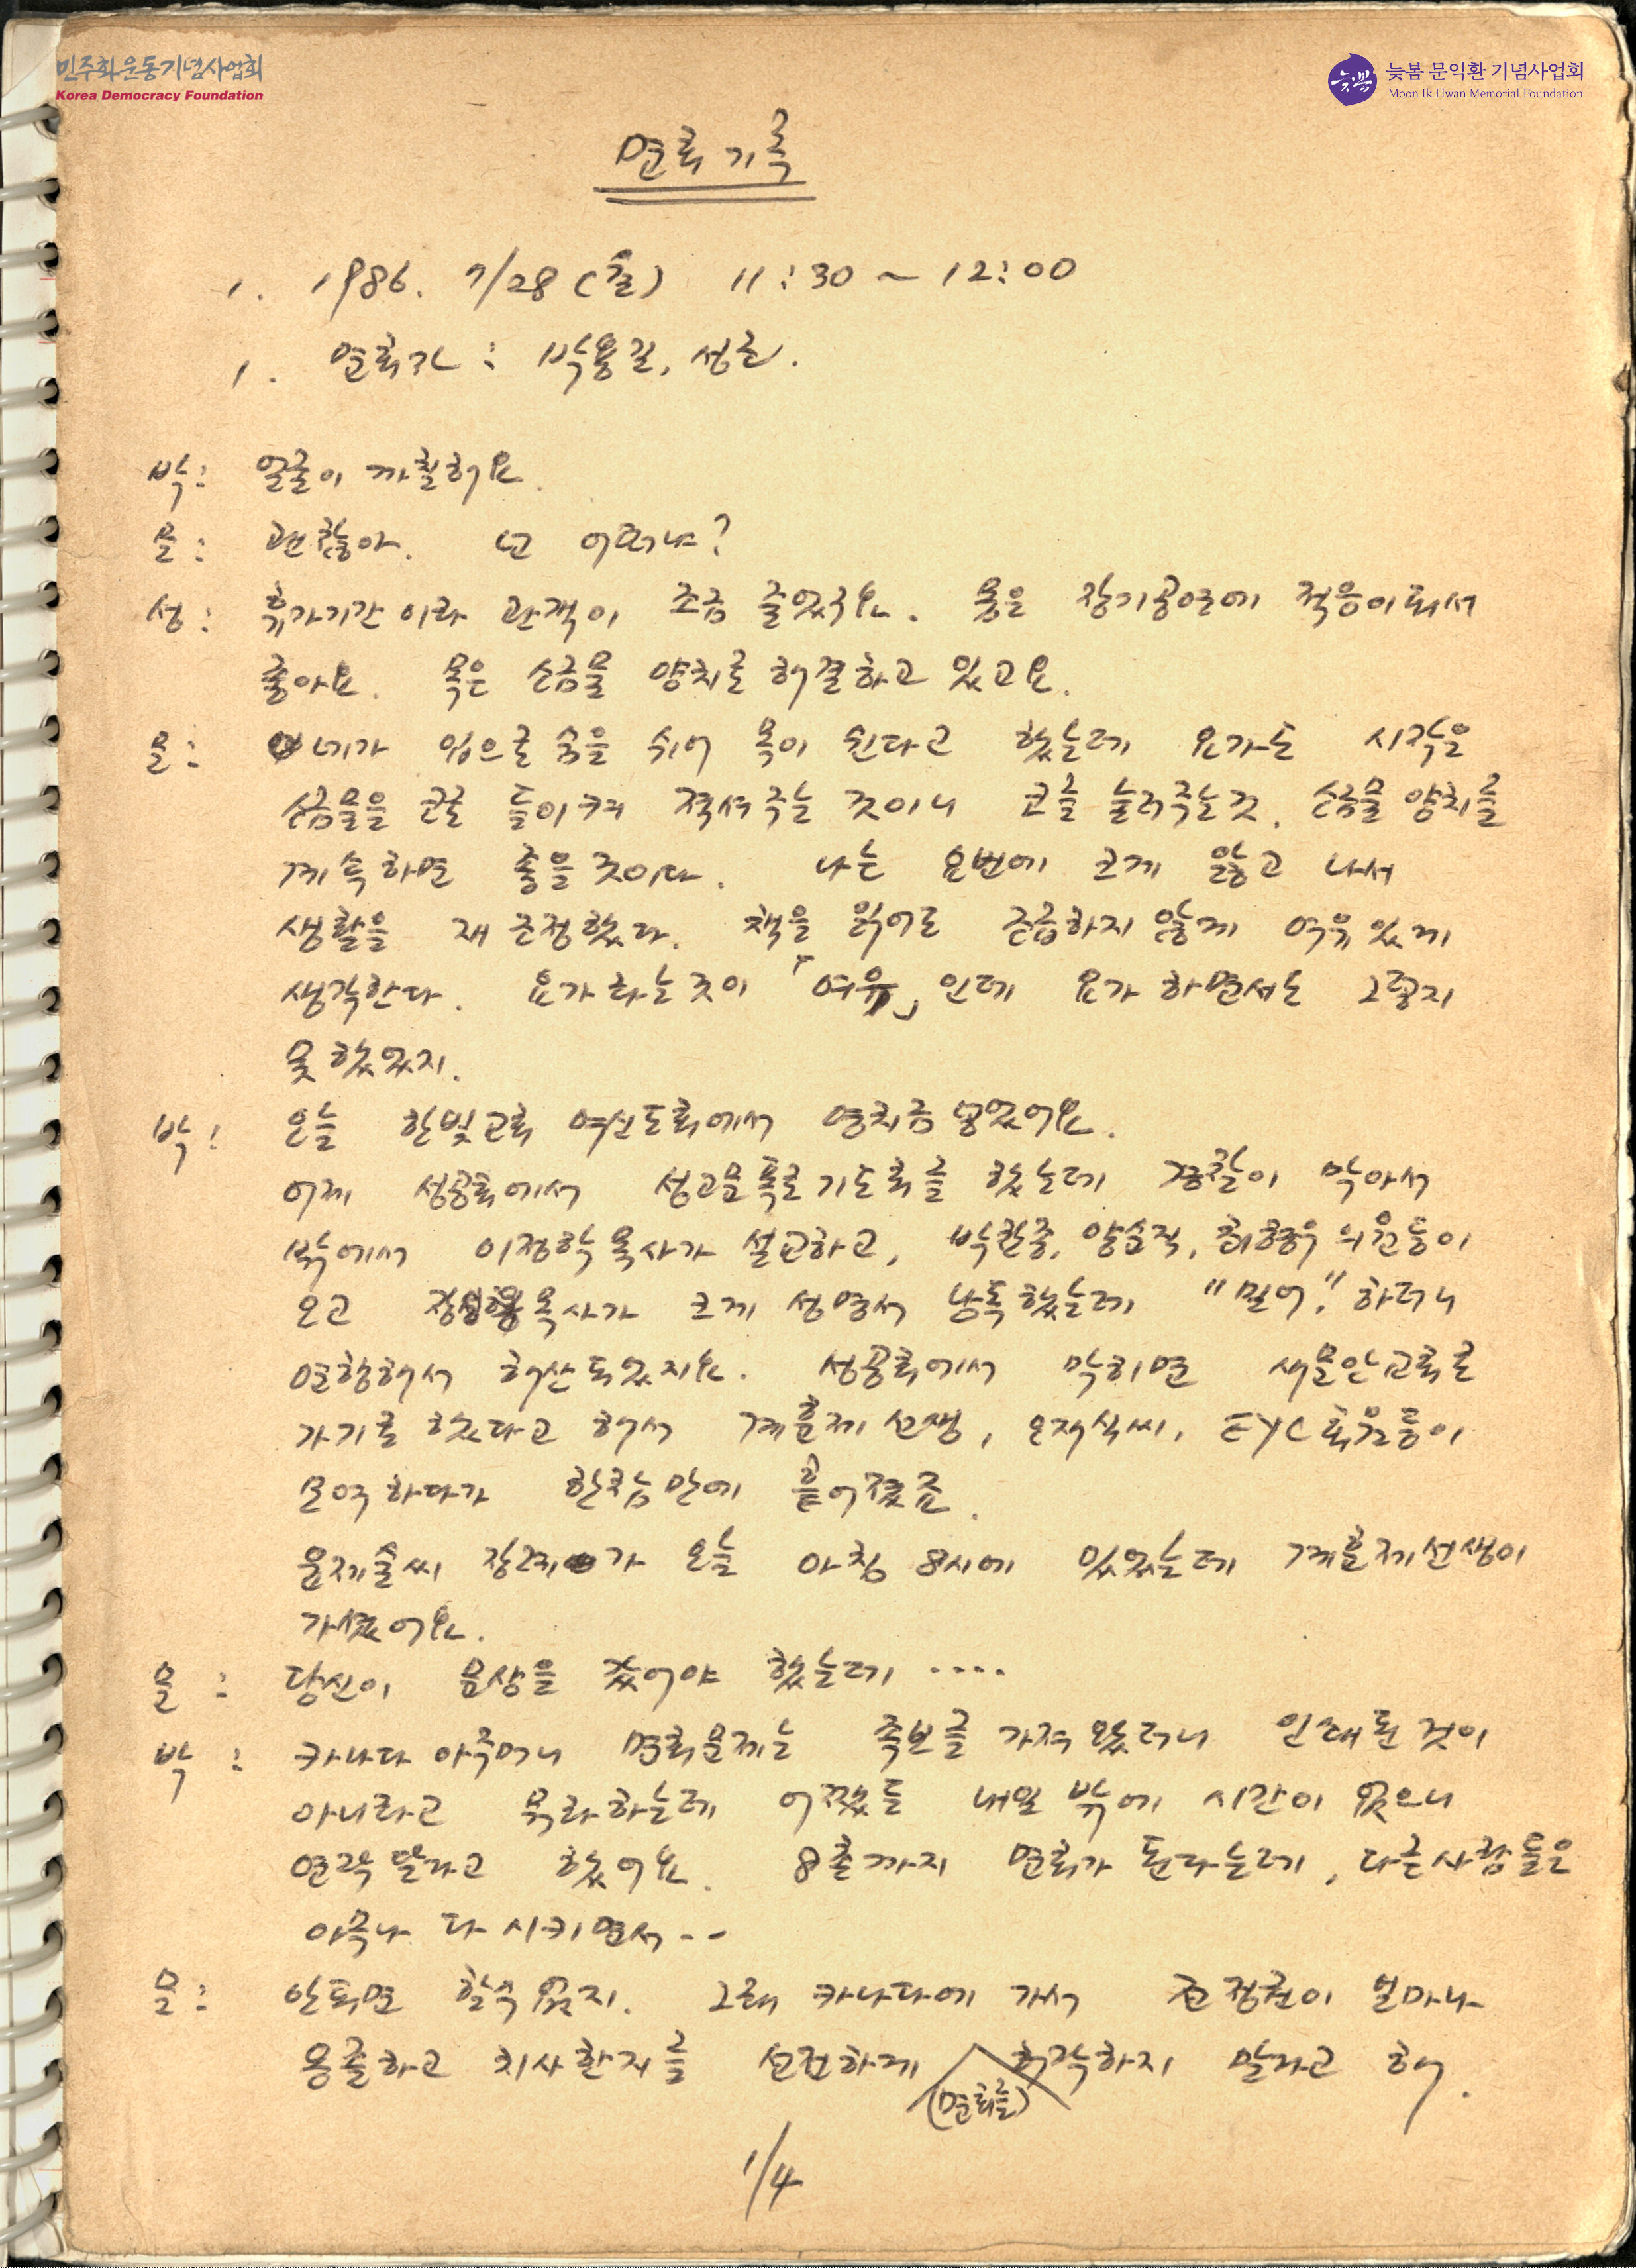 민주화운동기념사업회
Korea Democracy Foundation
늦봄
늦봄 문익환 기념사업회
Moon Ik Hwan Memorial Foundation
면회 기록
1. 1986. 7/28 (월) 11:30 ~ 12:00
1. 면회자 : 박용길, 성근.
박: 얼굴이 까칠해요.
문: 괜찮아. 넌 어떠냐?
성: 휴가기간이라 관객이 조금 줄었구요. 몸은 장기공연에 적응이 돼서
좋아요. 목은 소금물 양치로 해결하고 있고요.
문: 네가 입으로 숨을 쉬어 목이 쉰다고 했는데 요가는 시작을
소금물을 코로 들이켜 적셔주는 것이니 코를 늘려주는 것. 소금물 양치를
계속하면 좋을 것이다. 나는 요번에 크게 앓고 나서
생활을 재조정했다. 책을 읽어도 조급하지 않게 여유있게
생각한다. 요가하는 것이 「여유」인데 요가 하면서는 그렇지
못 했었지.
박: 오늘 한빛교회 여신도회에서 영치금 넣었어요.
어제 성공회에서 성고문폭로기도회를 했는데 경찰이 막아서
밖에서 이정학 목사가 설교하고, 박찬종, 양순직, 최형우 의원등이
오고 목사가 크게 성명서 낭독했는데 "밀어." 하더니
연행해서 해산됐었지요. 성공회에서 막히면 새문안교회로
가기로 했다고 해서 계훈제 선생, 오재식씨, EYC 회원등이
모여 하다가 한참만에 흩어졌죠.
윤제술씨 장례가 오늘 아침 8시에 있었는데 계훈제선생이
가셨어요.
문: 당신이 문상을 갔어야 했는데 ....
박: 카나다 아주머니 면회문제는 족보를 가져왔더니 인쇄된 것이
아니라고 목하는데 어쨌든 내일 밖에 시간이 없으니
연락 말라고 했어요. 8촌까지 면회가 된다는데, 다른사람들은
아무나 다 시키면서 --
문: 안되면 할수 없지. 그래 카나다에 가서 전정권이 얼마나
옹졸하고 치사한지를 선전하게 허락하지 말라고 해.
(면회를)
1/4